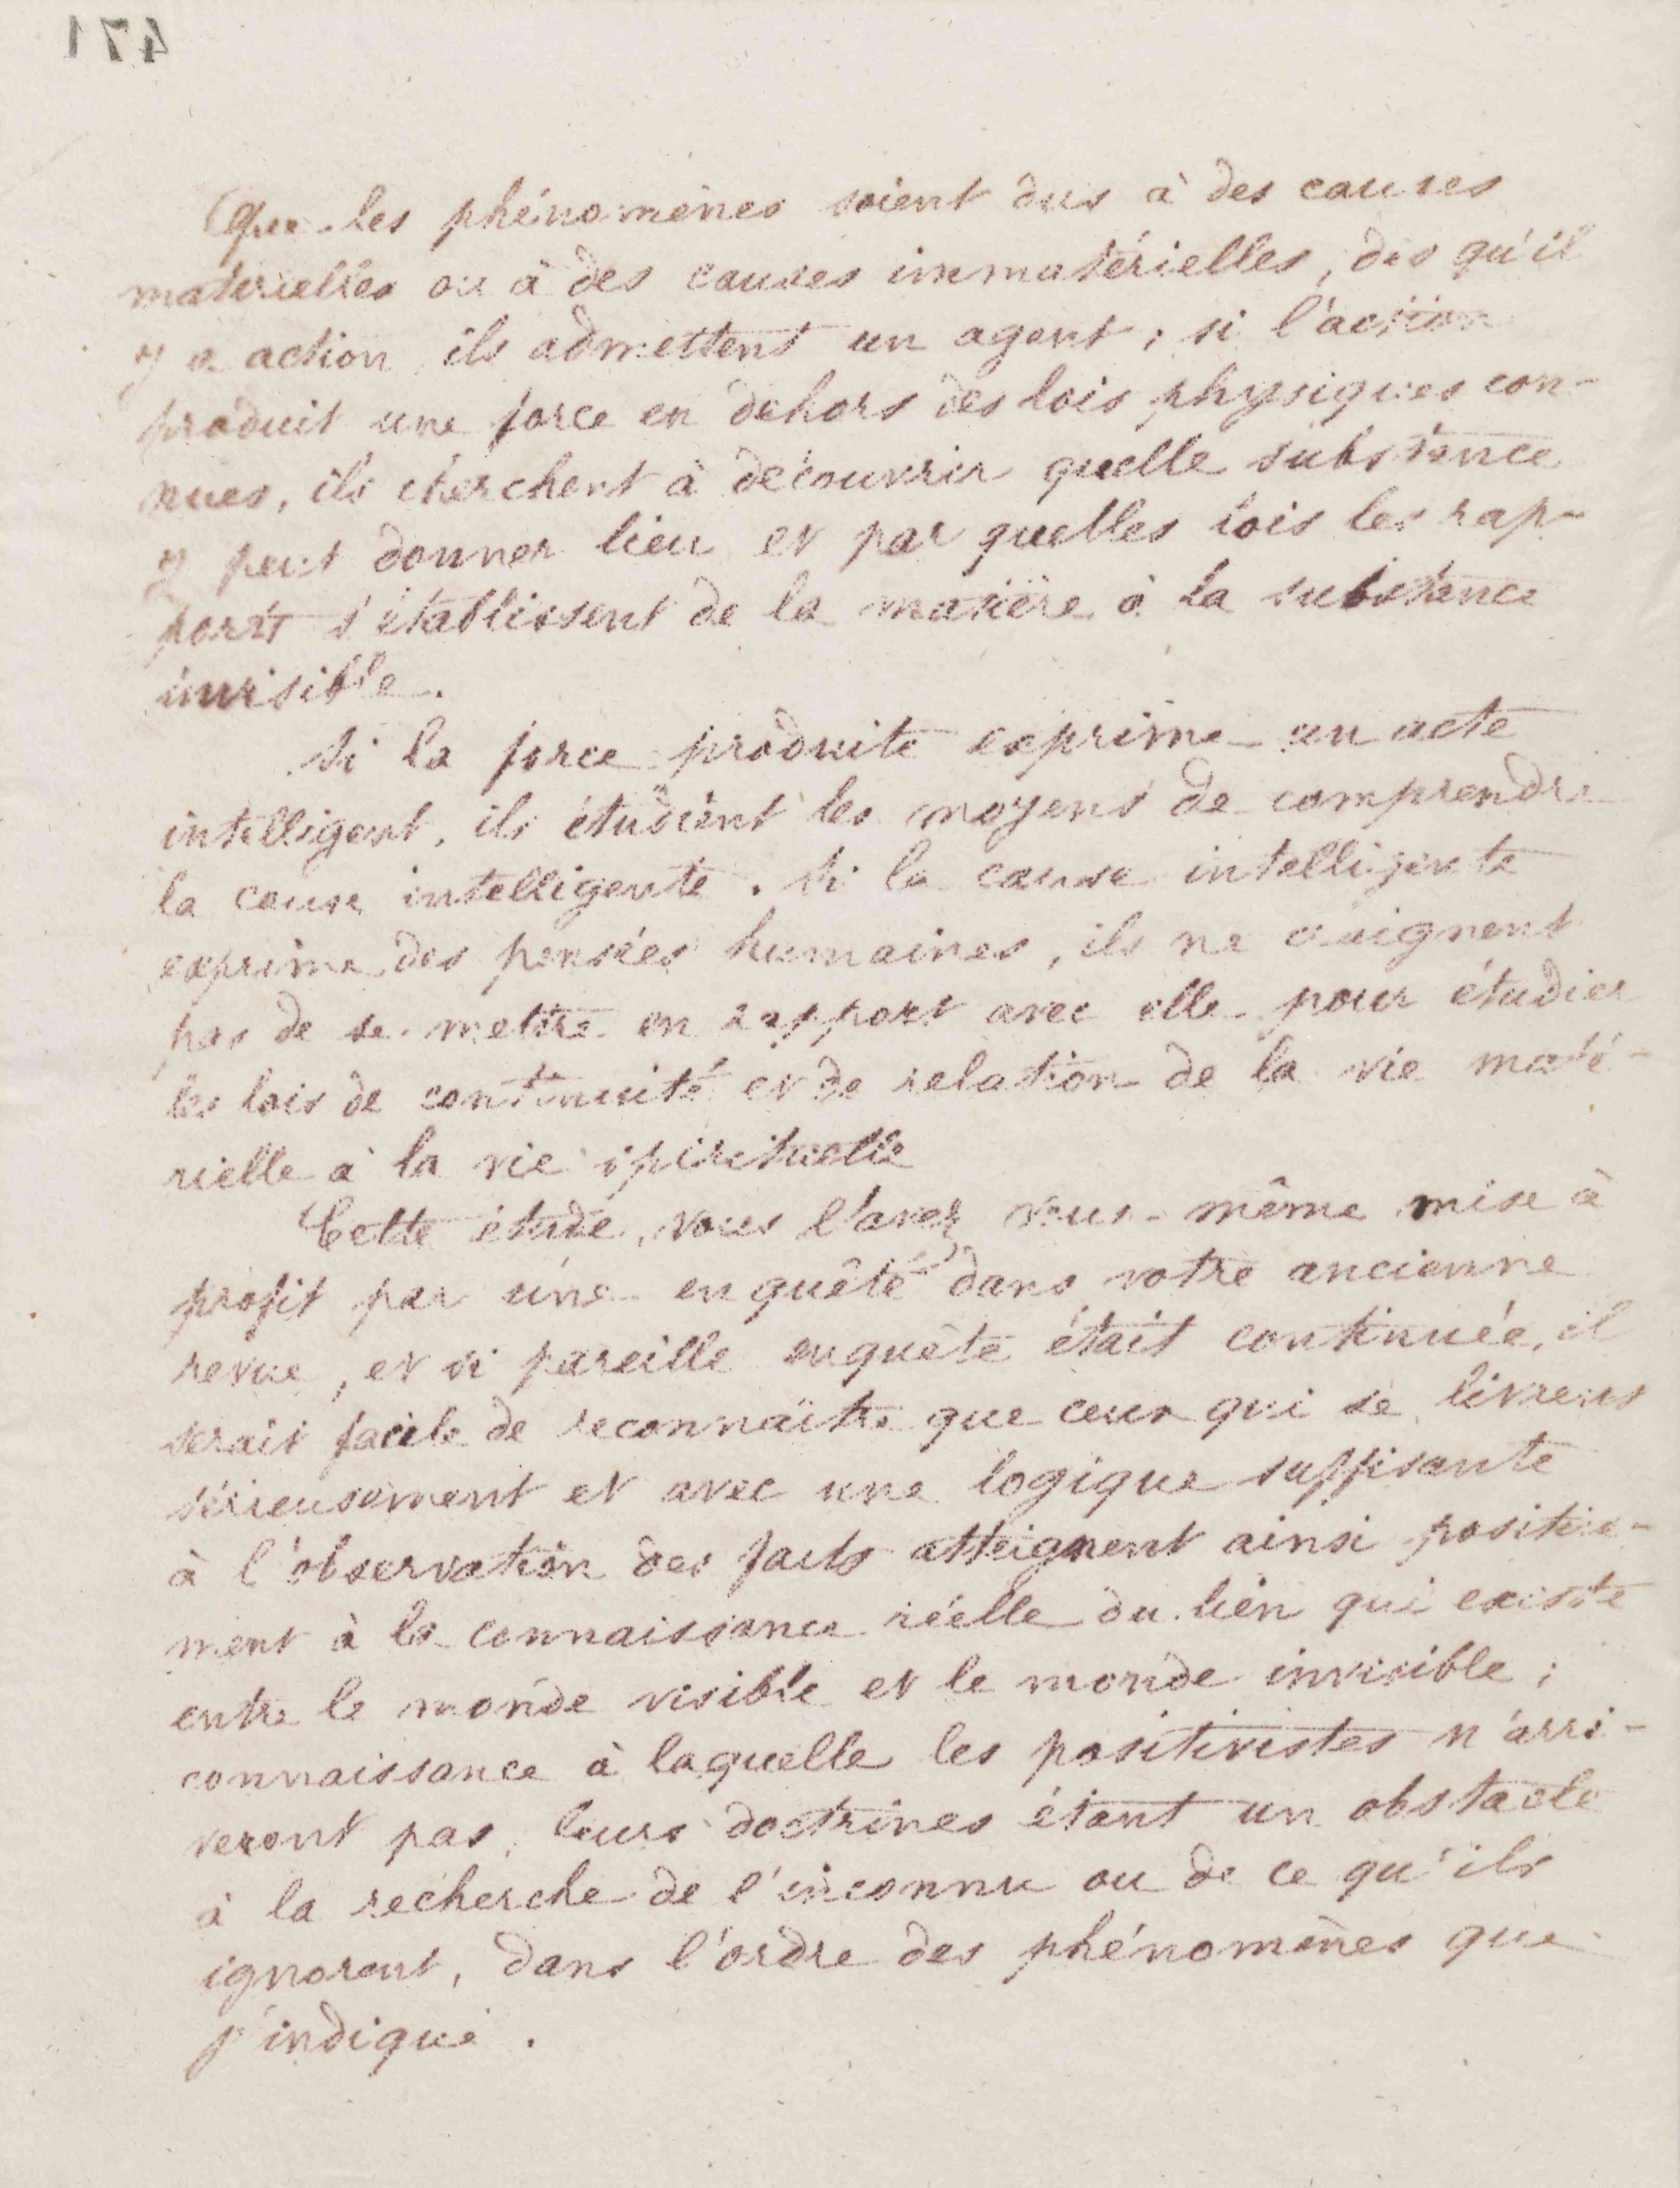 471
Que les phénomènes soient dus à des causes
matérielles ou à des causes immatérielles, dès qu'il
y a action, ils admettent un agent ; si l'action
produit une force en dehors des lois physiques con-
nues, ils cherchent à découvrir quelle substance
y peut donner lieu et par quelles lois les rap-
ports s'établissent de la matière à la substance
invisible.
Si la force produite exprime un acte
intelligent, ils étudient les moyens de comprendre
la cause intelligente. Si la cause intelligente
exprime des pensées humaines, ils ne craignent
pas de se mettre en rapport avec elle pour étudier
les lois de continuité et de relation de la vie maté-
rielle à la vie spirituelle
Cette étude, vous l'avez vous-même mise à
profit par une enquête dans votre ancienne
revue, et si pareille enquête était continuée, il
serait facile de reconnaître que ceux qui se livrent
sérieusement et avec une logique suffisante
à l'observation des faits atteignent ainsi positive-
ment à la connaissance réelle du lien qui existe
entre le monde visible et le monde invisible ;
connaissance à laquelle les positivistes n'arri-
veront pas, leurs doctrines étant un obstacle
à la recherche de l'inconnu ou de ce qu'ils
ignorent, dans l'ordre des phénomènes que
j'indique.